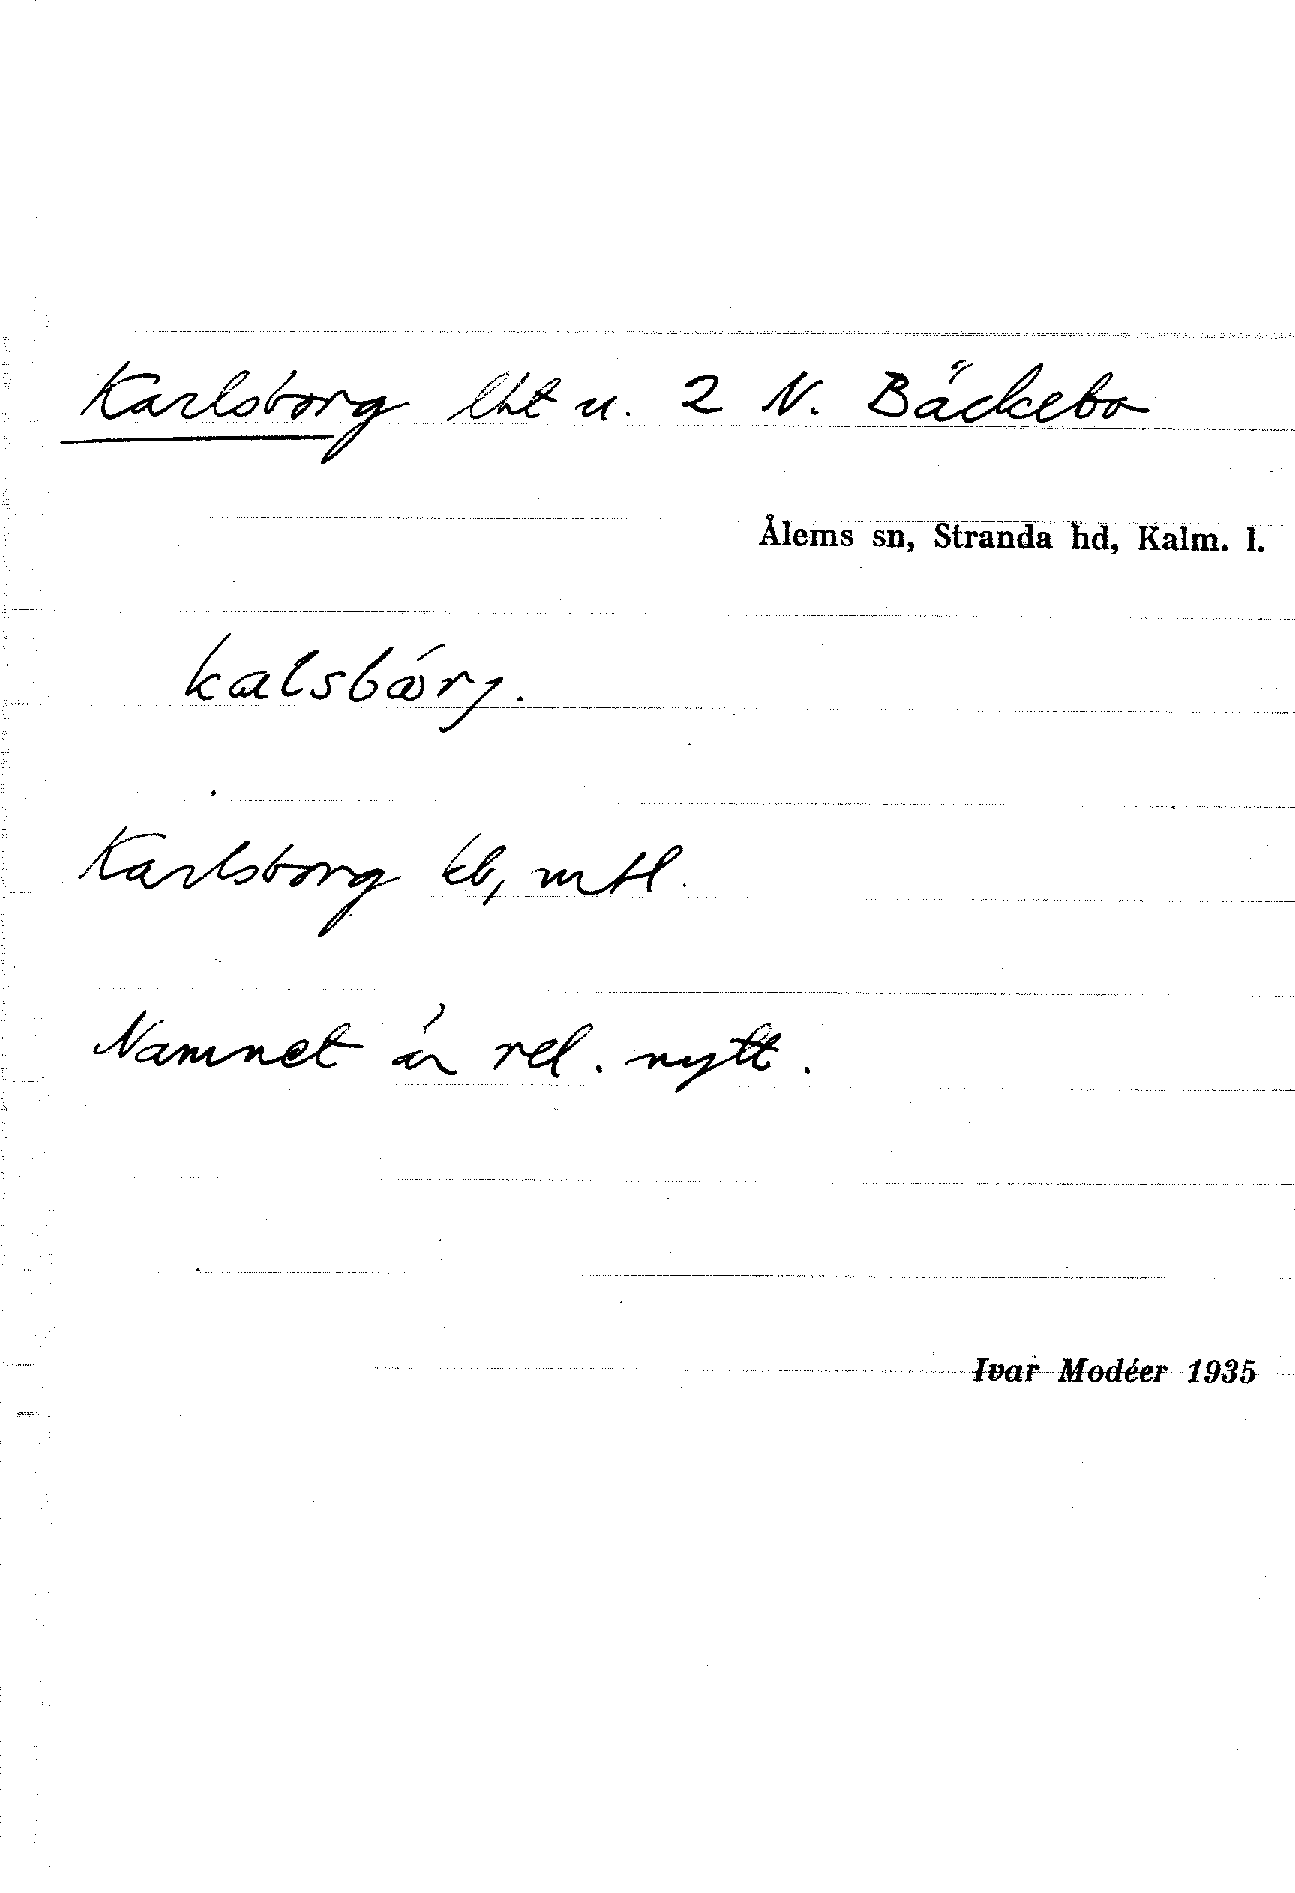 Karlsborg lht u. 2 N. Bäckebo
Ålems sn, Stranda hd, Kalm. l.
kalsbǿrj.
Karlsborg kb, mtl.
Namnet är rel. nytt.
Ivar Modéer 1935